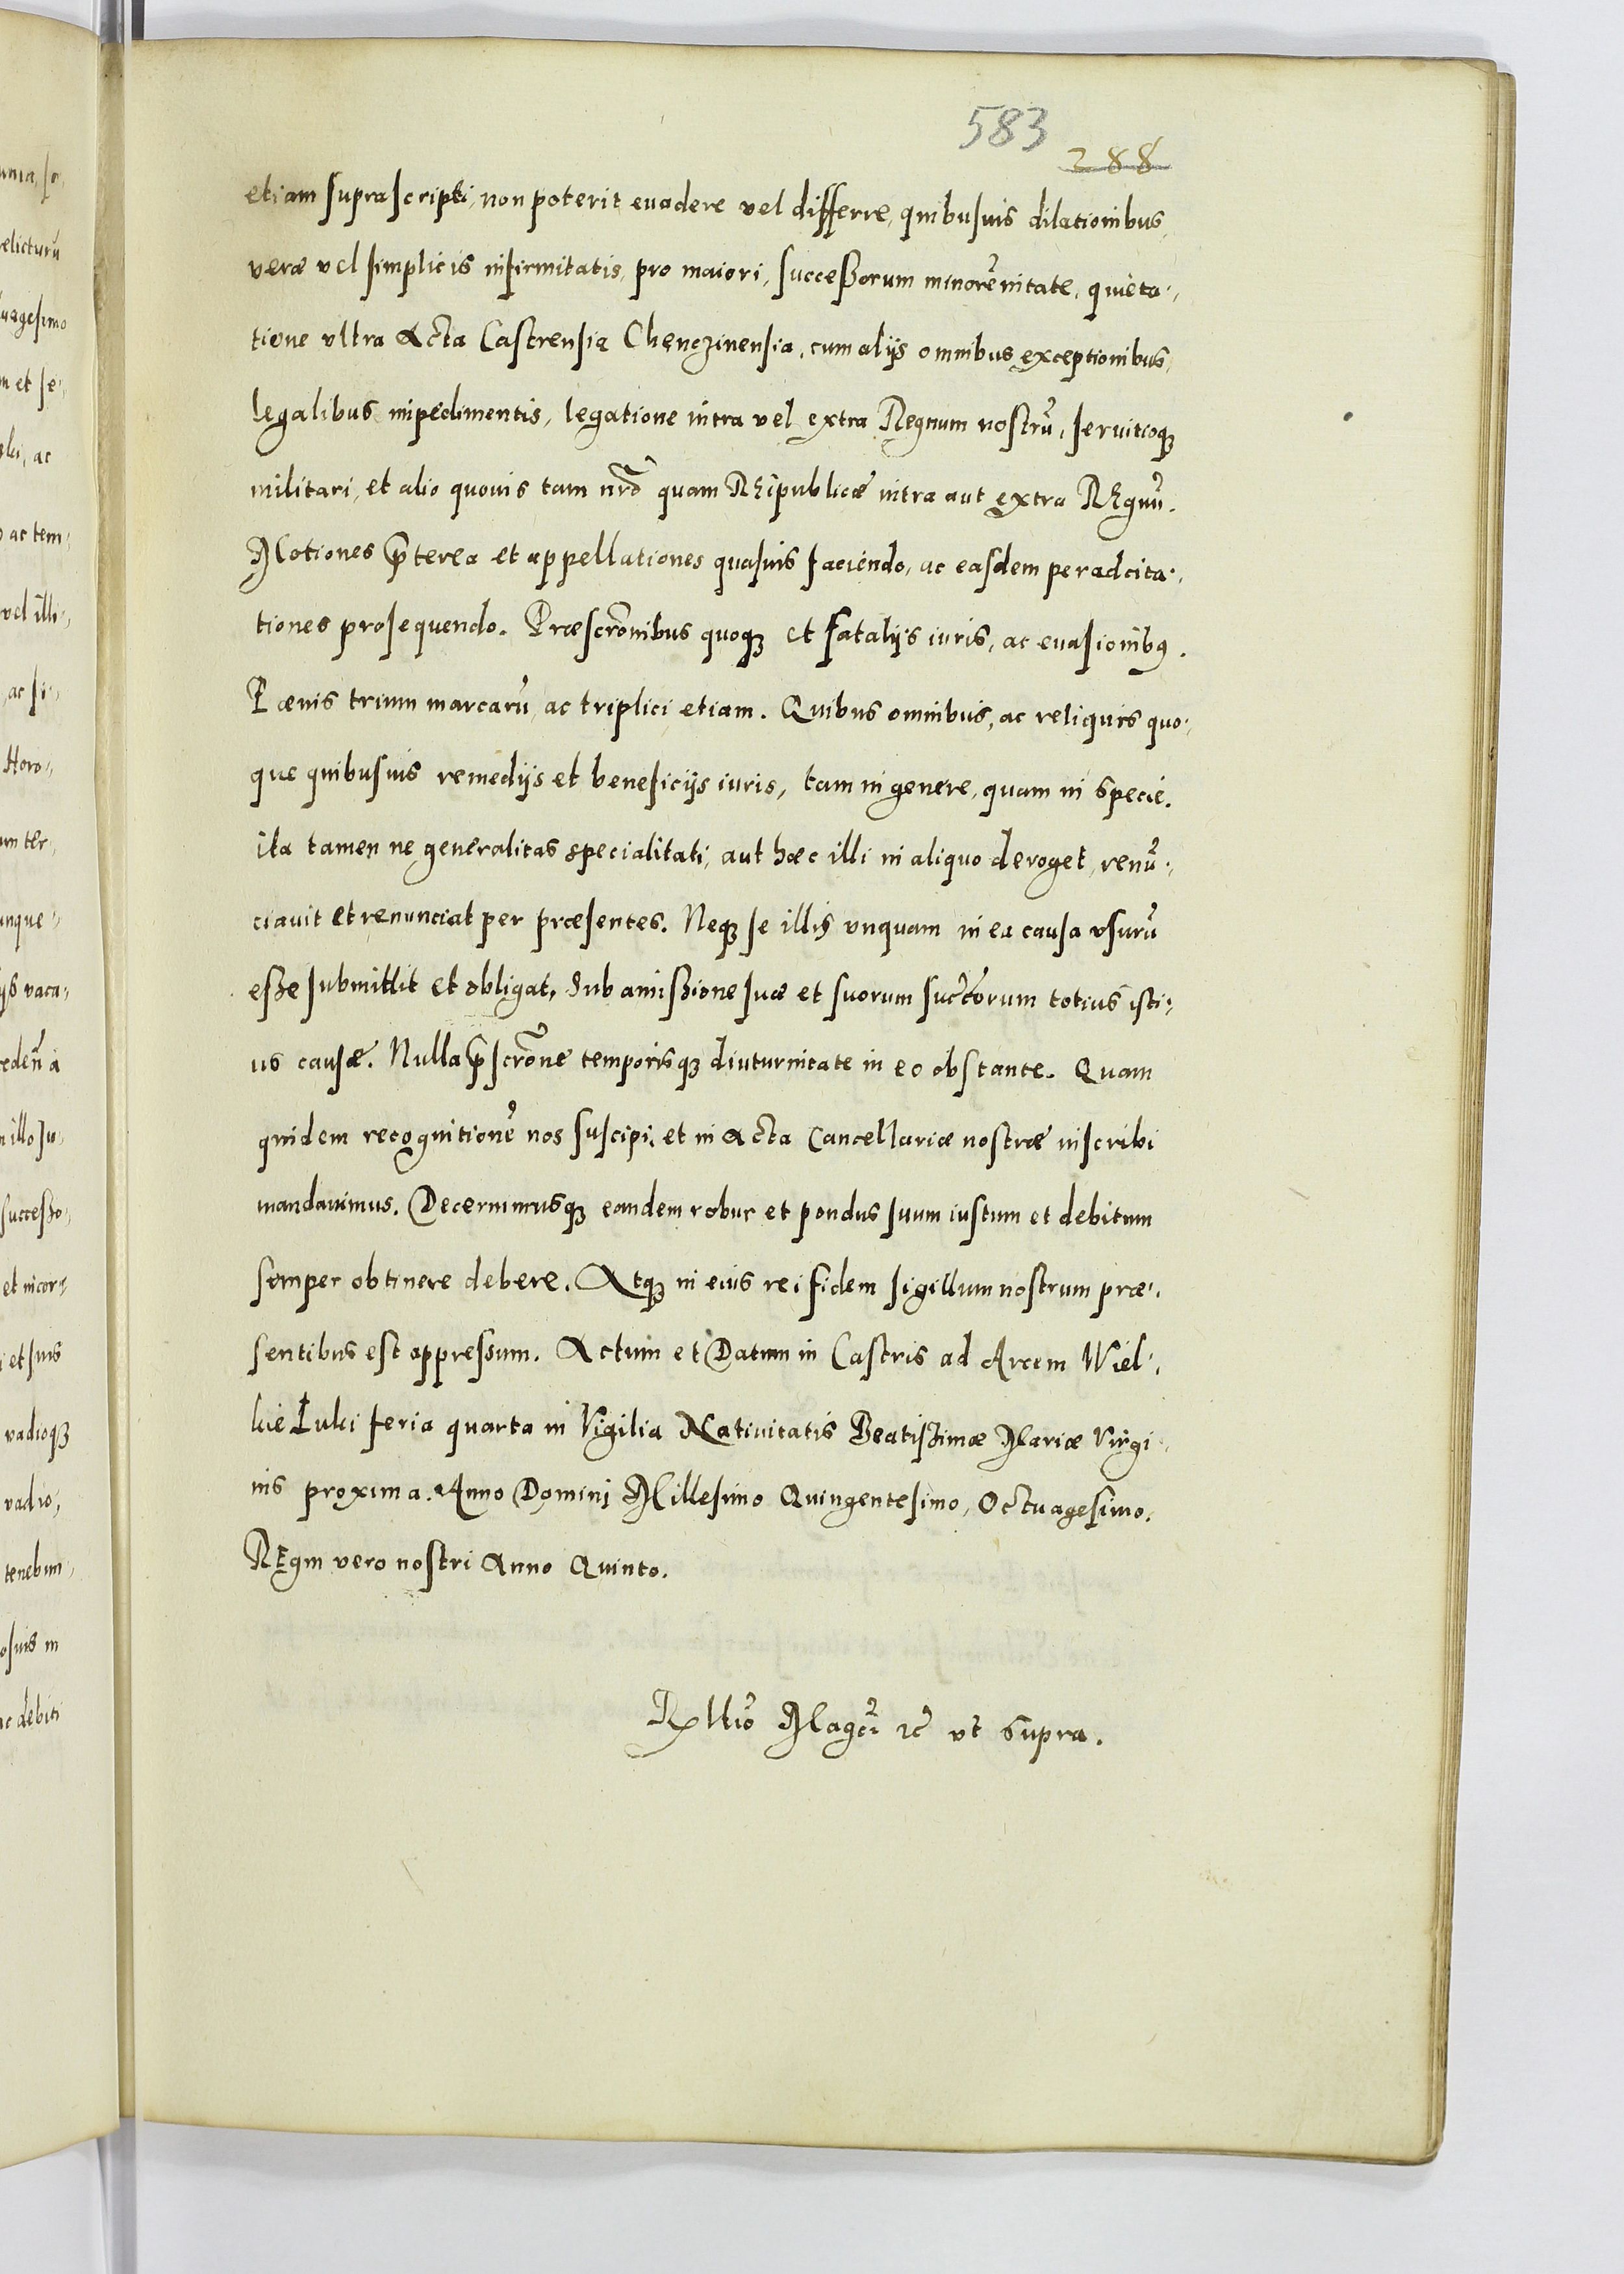 583
288
etiam suprascripti, non poterit euadere vel differre, quibusuis dilationibus,
veræ vel simplicis infirmitatis, pro maiori, successorum minorēnitate, quieta-
tione vltra Acta Castrensia Chenczinensia, cum alijs omnibus exceptionibus,
legalibus impedimentis, legatione intra vel extra Regnum nostrū, seruitioq;
militari, et alio quouis tam nrō quam REipublicæ intra aut extra REgnū.
Motiones p̄terea et appellationes quasuis faciendo, ac easdem per adcita-
tiones prosequendo. Præscrōnibus quoq; et fatalijs iuris, ac euasionibꝯ.
Pœnis trium marcarū, ac triplici etiam. Quibus omnibus, ac reliquis quo-
que quibusuis remedijs et beneficijs iuris, tam in genere, quam in specie.
ita tamen ne generalitas specialitati, aut hæc illi in aliquo deroget, renū-
ciauit et renunciat per præsentes. Neq; se illis vnquam in ea causa vsurū
esse submittit et obligat, sub amissione suæ et suorum succ̄orum totius isti-
us causæ. Nulla p̄scrōne temporisq; diuturnitate in eo obstante. Quam
quidem recognitionē nos suscipi, et in Acta Cancellariæ nostræ inscribi
mandauimus. Decernimusq; eandem robur et pondus suum iustum et debitum
semper obtinere debere. Atq; in eius rei fidem sigillum nostrum præ-
sentibus est appressum. Actum et Datum in Castris ad Arcem Wiel-
kie Łuki feria quarta in Vigilia Natiuitatis Beatissimæ Mariæ Virgi-
nis proxima. Anno Domini Millesimo Quingentesimo, Octuagesimo.
REgni vero nostri Anno Quinto.
Rllio Magci ꝛc̄ vt supra.